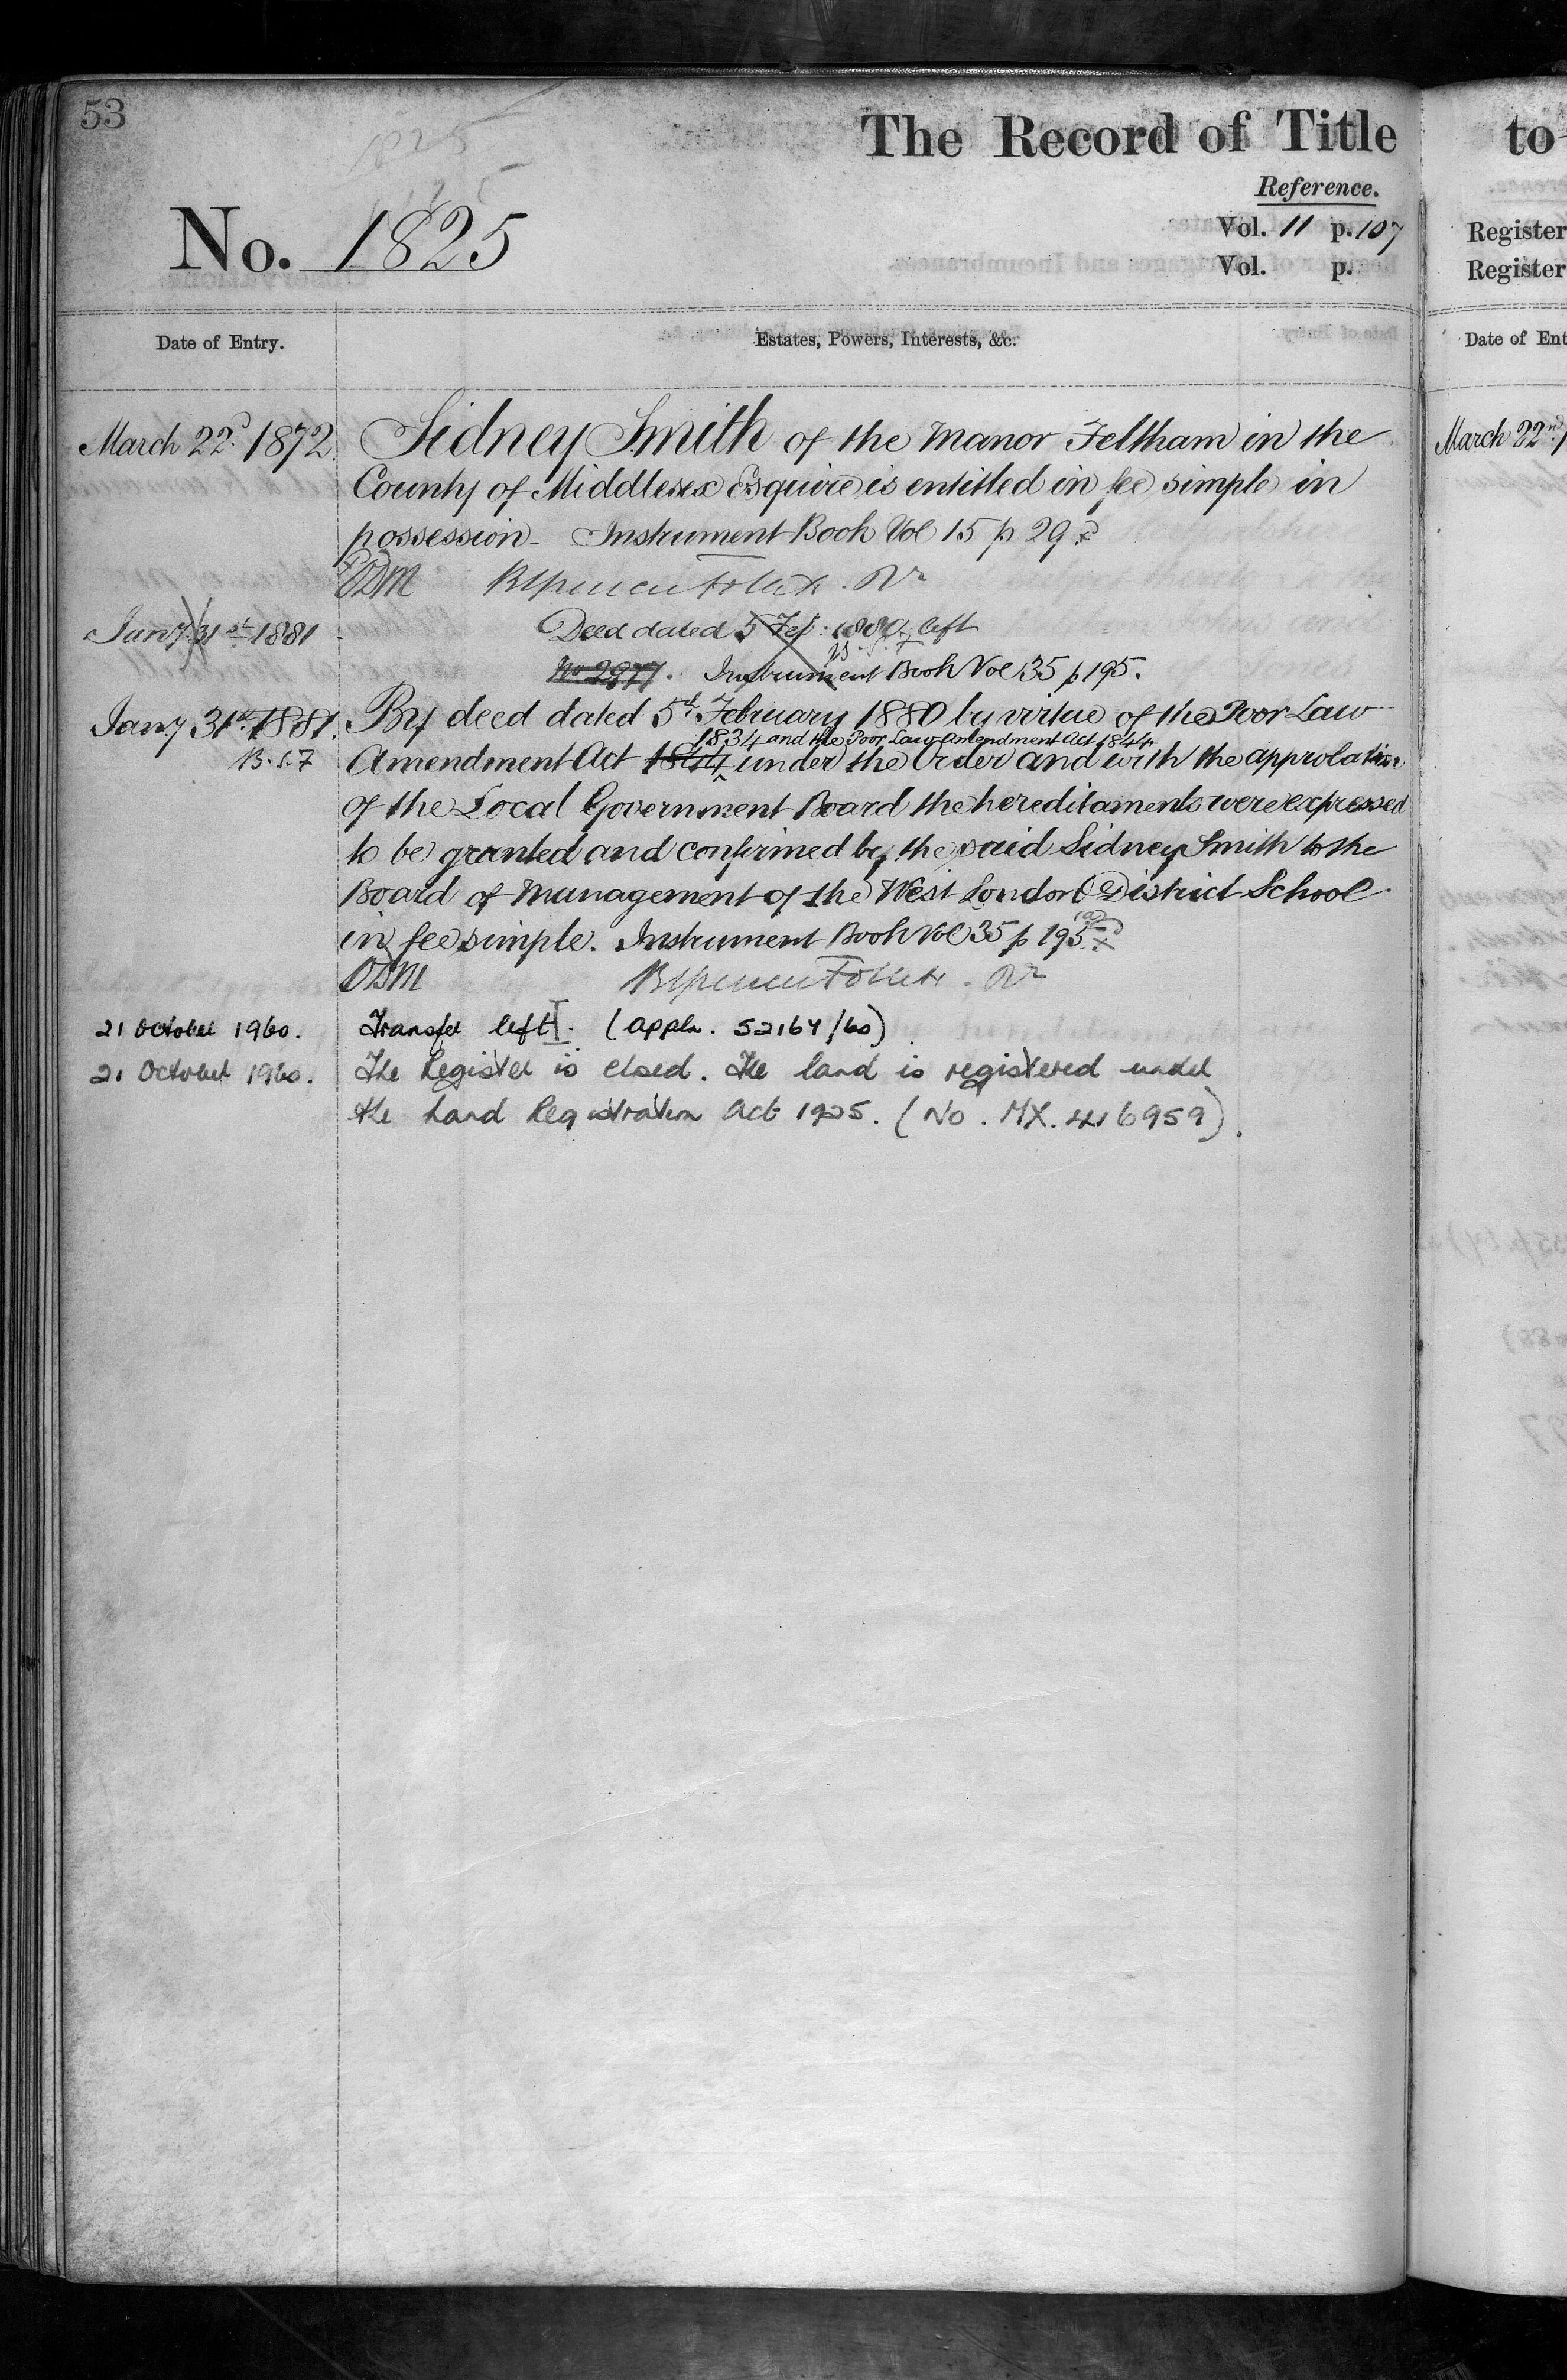 53
The Record of Title
to
Reference.
No. 1825
Vol. 11 p. 107
Vol. p.
Register
Register
Date of Entry.
Estates, Powers, Interests, &c.
Date of Ent
March 22d. 1872. Sidney Smith of the Manor Feltham in the
County of Middlesex Esquire is entitled in fee simple in
possession - Instrument Book Vol 15 p 29
ODM Brent Spencer Follett. Rr
Jany 31st 1881 Deed dated 5 Feb: 1880 left
No 2977. Instrument Book Vol 35 p 195.
Jany 31st 1881. By deed dated 5th February 1880 by virtue of the Poor Law
1834 and the Poor Law Amendment Act 1844
B.S.F Amendment Act 1844 under the Order and with the approbation
of the Local Government Board the hereditaments were expressed
to be granted and confirmed by the said Sidney Smith to the
Board of Management of the West London District School
in fee simple. Instrument Book Vol 35 p 195
ODM Brent Spencer Follett. Rr
21 October 1960. Transfer left. (appln. 52164/60)
21 October 1960. The Register is closed. The land is registered under
the Land Registration Act 1925. (No. MX. 416959).
March 22nd 1